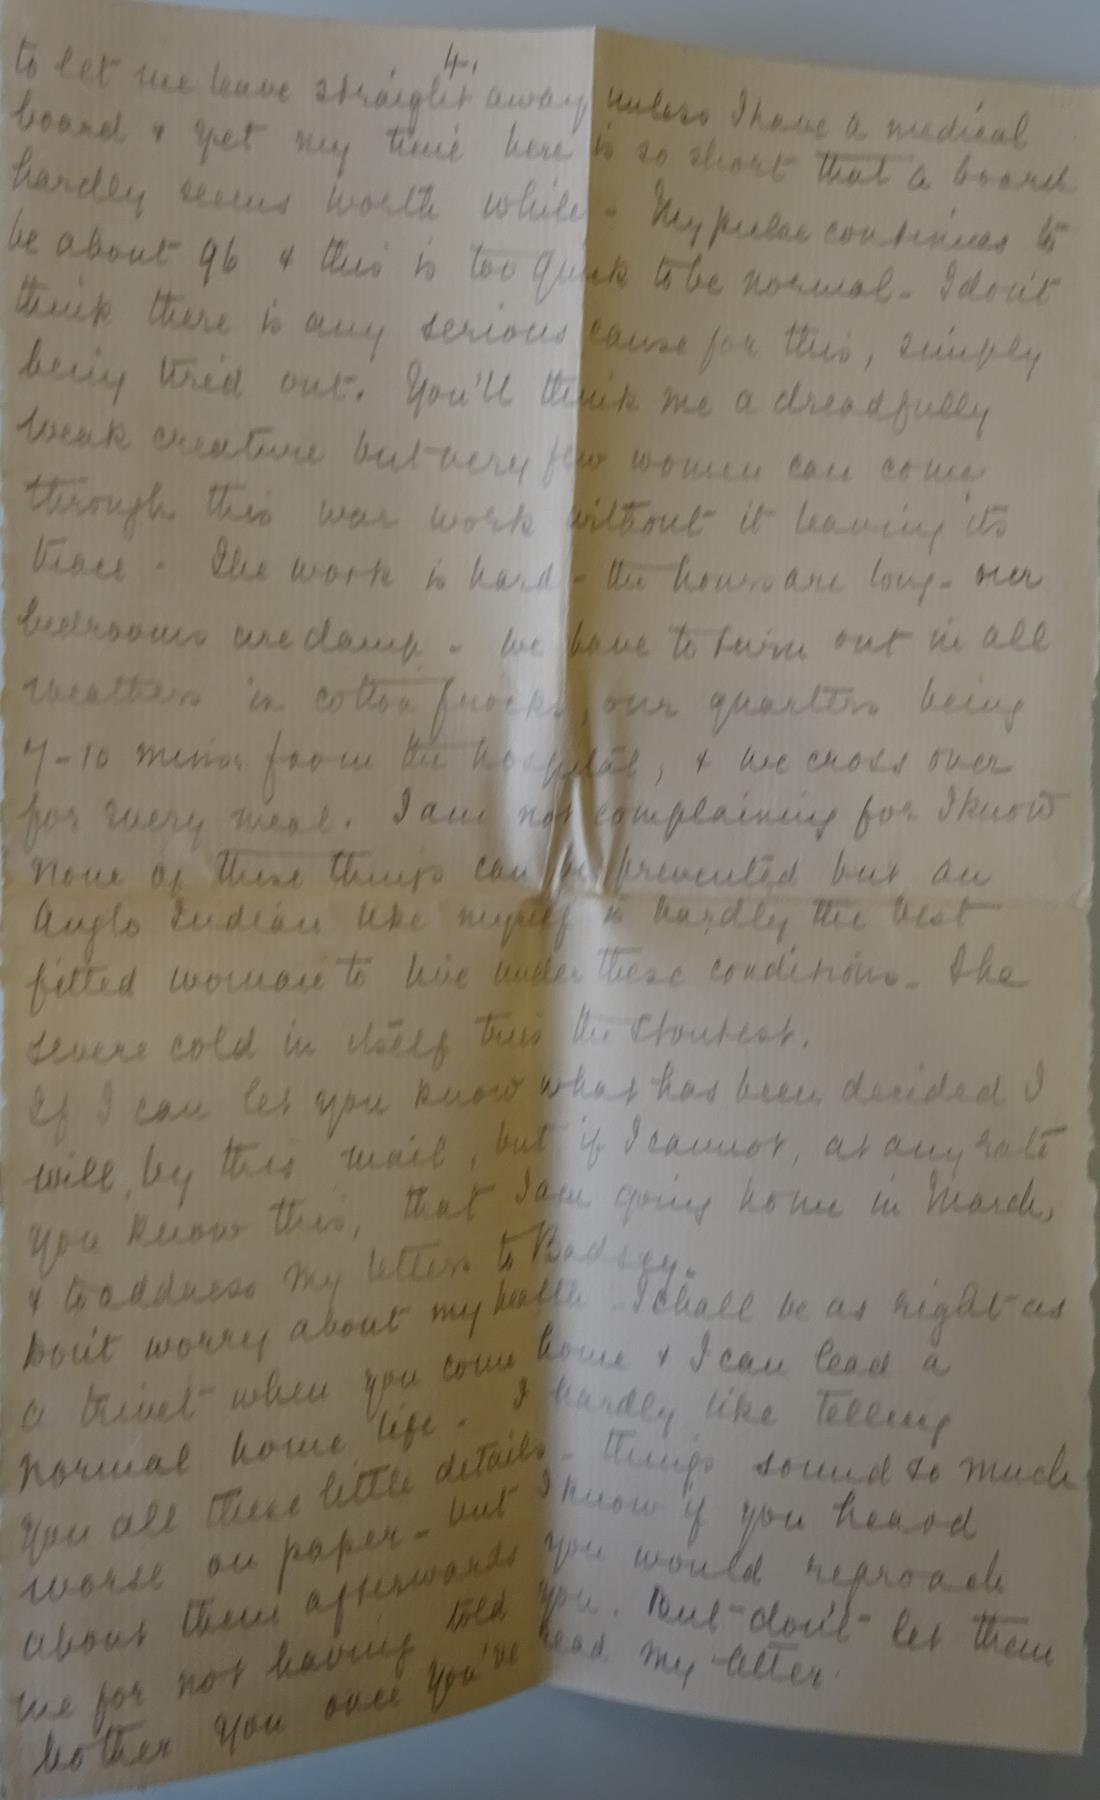 4.
to let me leave straight away unless I have a medical
board & yet my time here is so short that a board
hardly seems worth while - My pulse continues to
be about 96 & this is too quick to be normal - I don't
think there is any serious cause for this, simply
being tired out. You'll think me a dreadfully
weak creature but very few women can come
through this war work without it leaving its
trace - The work is hard - the hours are long - our
bedrooms are damp - we have to turn out in all
weathers in cotton frocks, our quarters being
7-10 mins from the hospital, & we cross over
for every meal. I am not complaining for I know
none of these things can be prevented but an
Anglo Indian like myself is hardly the best
fitted woman to live under these conditions - The
severe cold in itself tries the stoutest.
If I can let you know what has been decided I
will, by this mail, but if I cannot, at any rate
you know this, that I am going home in March,
& to address my letters to Badsey.
Don't worry about my health - I shall be as right as
a trivet when you come home & I can lead a
normal home life - I hardly like telling
you all these little details - things sound so much
worse on paper - but I know if you heard
about them afterwards you would reproach
me for not having told you. But don't let them
bother you once you've read my letter.